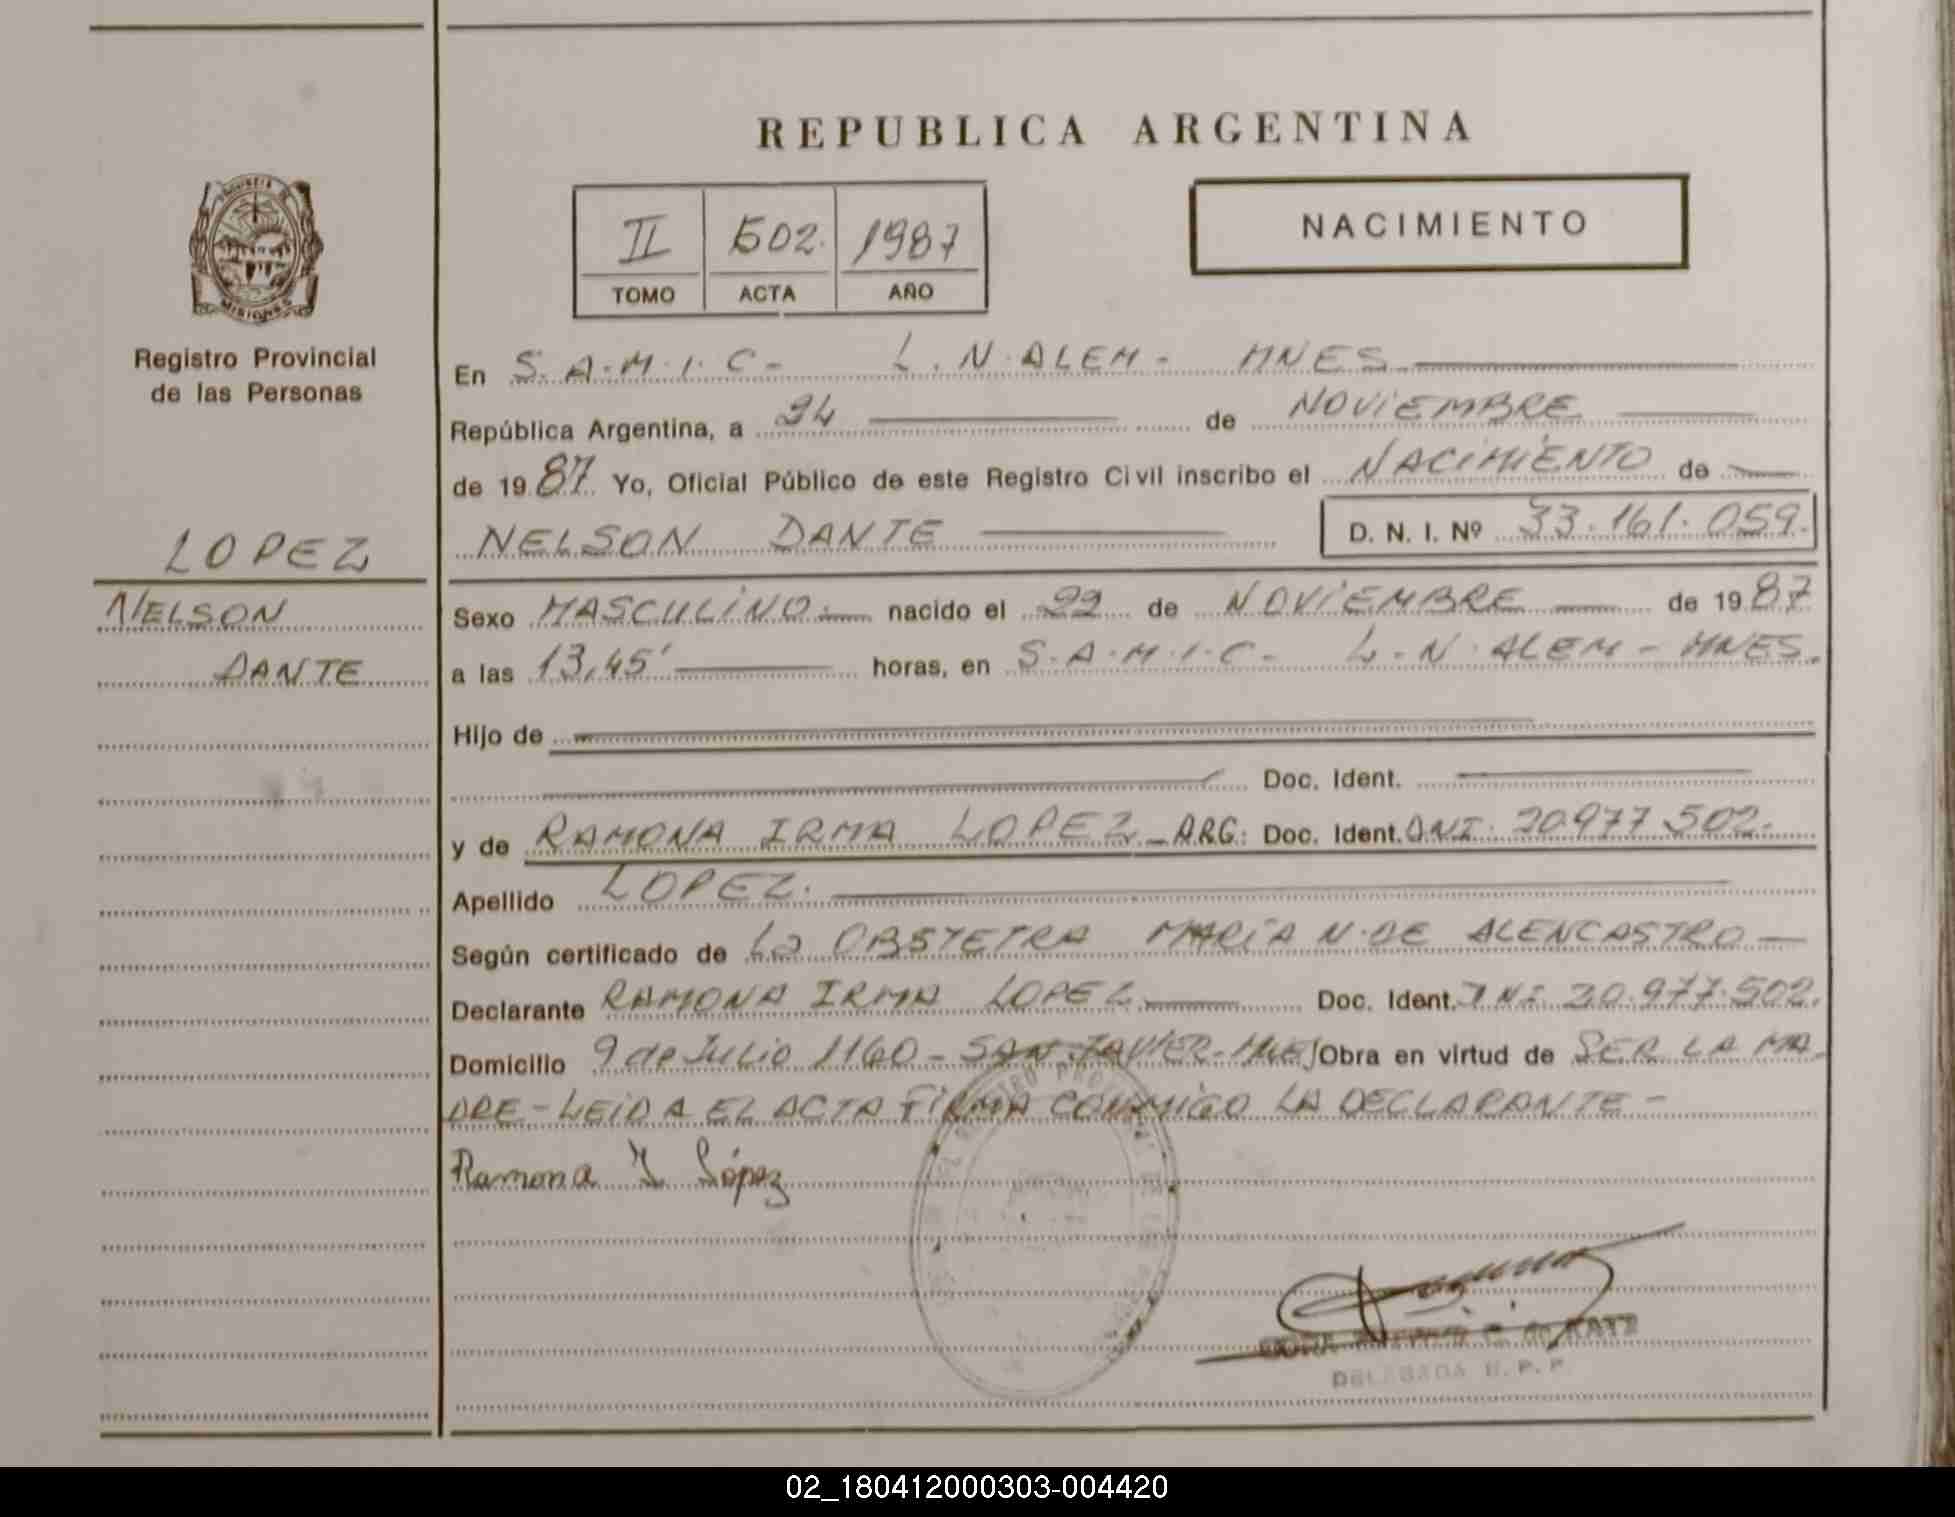 REPUBLICA ARGENTINA
II 502. 1987
TOMO ACTA AÑO
NACIMIENTO
MISIONES
Registro Provincial
de las Personas
LOPEZ
NELSON
DANTE
En S.A.M.I.C- L.N.ALEM- MNES
República Argentina, a 24 de NOVIEMBRE
de 1987. Yo, Oficial Público de este Registro Civil inscribo el NACIMIENTO de
NELSON DANTE D. N. I. Nº 33.161.059.
Sexo MASCULINO.- nacido el 22 de NOVIEMBRE de 1987
a las 13,45' horas, en S.A.M.I.C- L.N.ALEM-MNES.
Hijo de
Doc. Ident.
y de RAMONA IRMA LOPEZ-ARG: Doc. Ident. DNI. 20.977.502.
Apellido LOPEZ.
Según certificado de La OBSTETRA MARÍA N. DE ALENCASTRO-
Declarante RAMONA IRMA LOPEZ Doc. Ident. DNI 20.977.502.
Domicilio 9 de Julio 1160-SAN JAVIER-MNES Obra en virtud de SER LA MA
DRE-LEIDA EL ACTA FIRMA CONMIGO LA DECLARANTE-
Ramona I López
de KATZ
DELEGADA
02_180412000303-004420